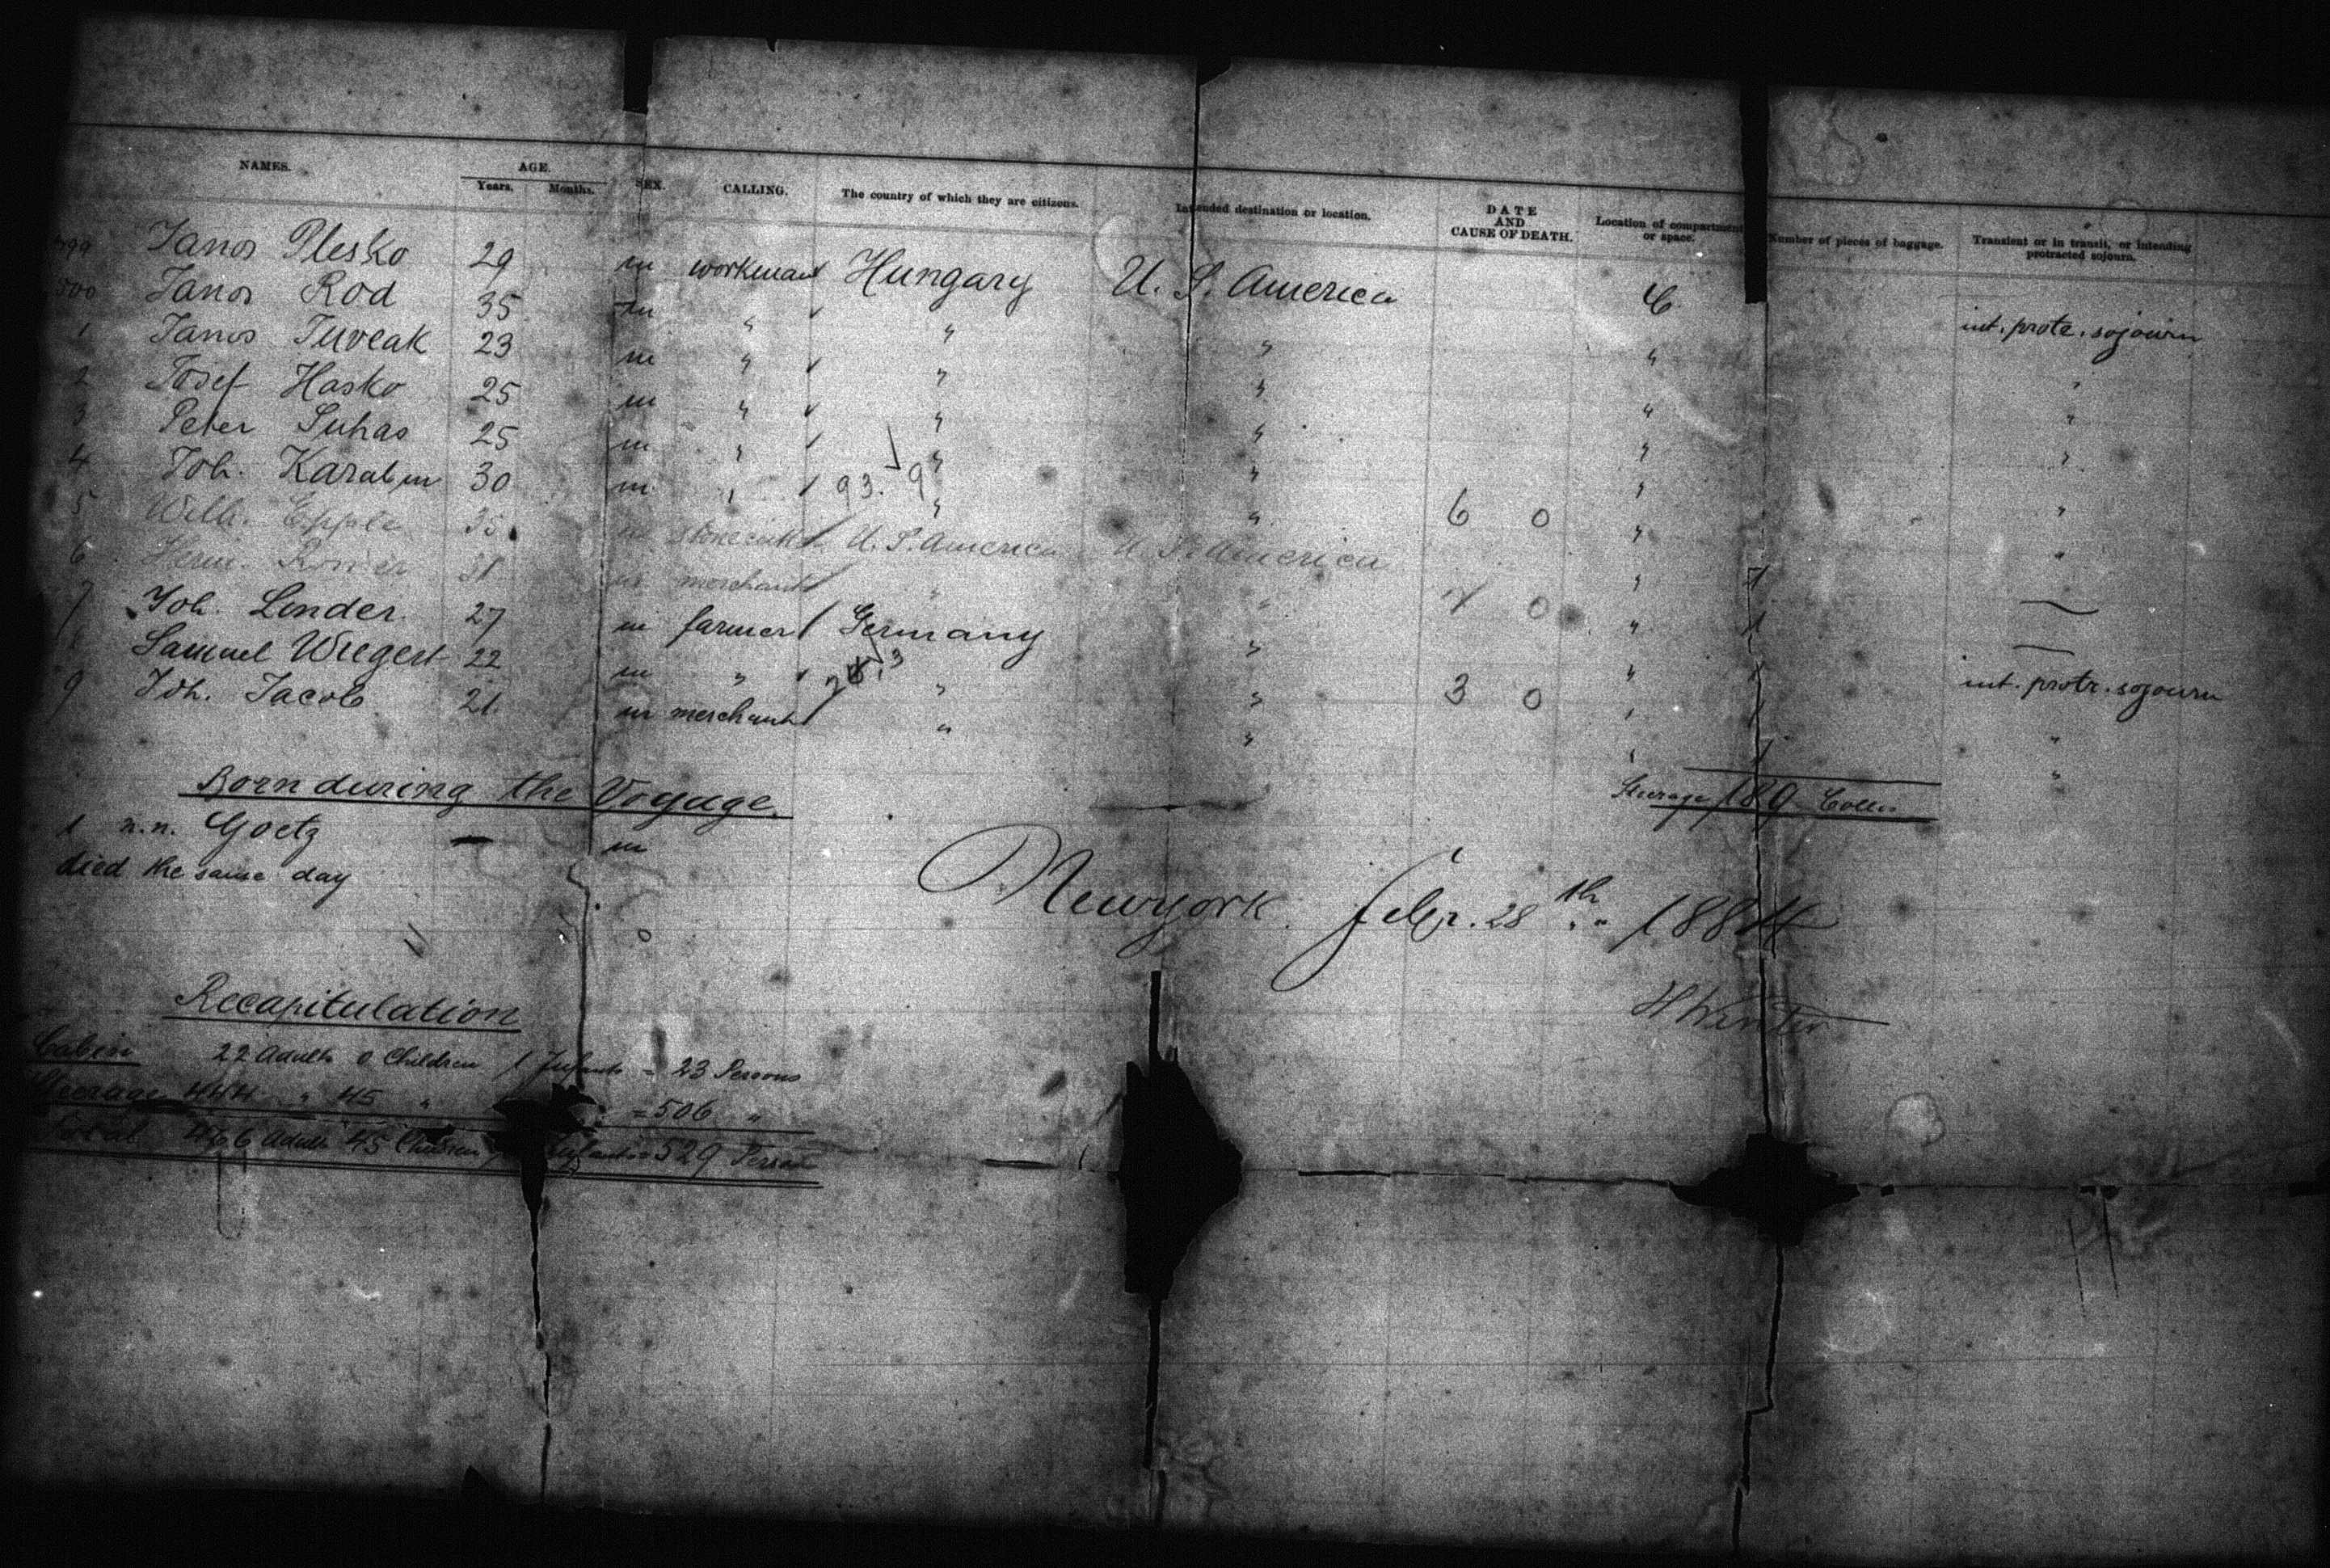 NAMES. AGE. Years. Months. SEX. CALLING. The country of which they are citizens. Intended destination or location. DATE AND CAUSE OF DEATH. Location of compartment or space. Number of pieces of baggage. Transient or in transit, or intending protracted sojourn.
499 Janos Plesko 29 m workman Hungary U. S. America C. int. protr. sojourn
500 Janos Rod 35 m " " " " "
1 Janos 23 m " " " " "
2 Josef Hasko 25 m " " " " "
3 Peter Suhas 25 m " " " " "
4 Joh. Karabin 30 m " 93. 9 " " 6 0 " "
5 Wilh. Epple 35 m U. S. America U. S. America " 1 —
6 Herm. 31 m merchant " " 0 " 1 —
7 Joh. Linder 27 m farmer Germany " " 1 int. protr. sojourn
8 Samuel Wiegert 22 m " " " 3 0 " 1 "
9 Joh. Jacob 21 m merchant " " " 1 "
Steerage 189 Collis
Born during the Voyage.
1 n.n. Goetz — m
died the same day
Newyork Febr. 28th 1884
Recapitulation
Cabin 22 Adults 0 Children 1 Infants = 23 Persons
Steerage 444 " 45 " = 506 "
Total 466 Adults 45 Children Infants = 529 Persons